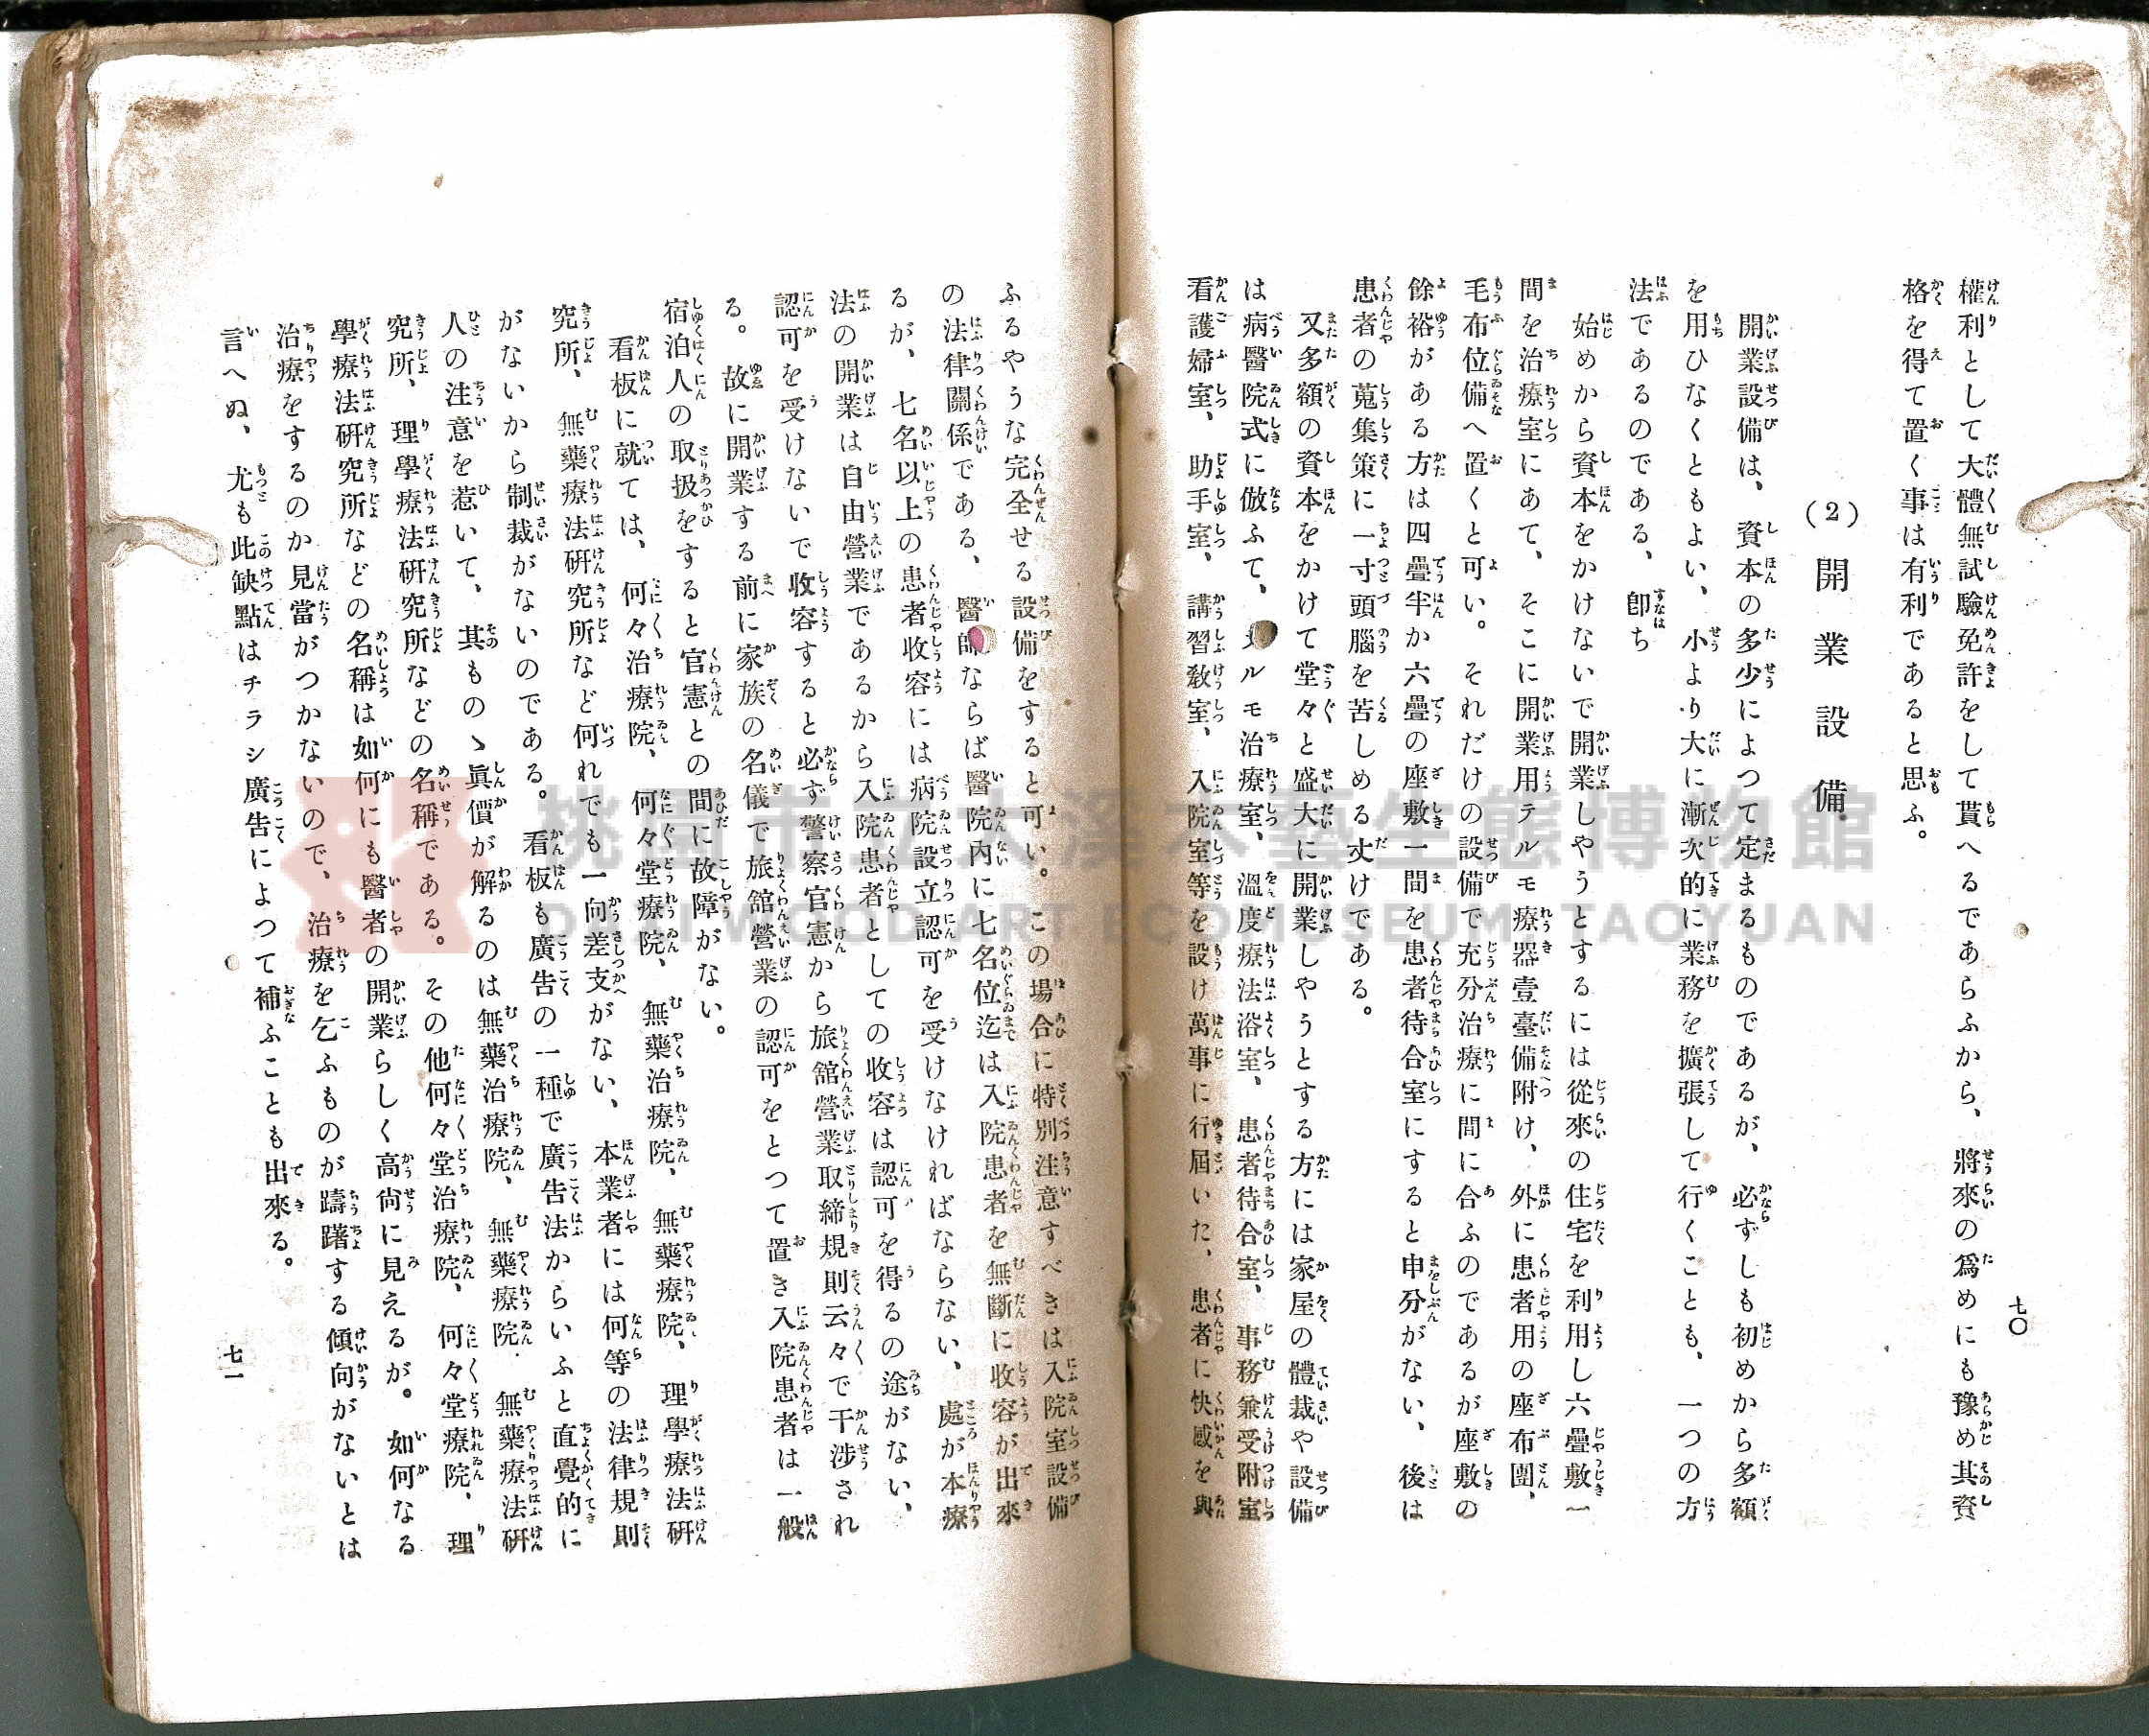 七〇
權利として大體無試驗免許をして貰へるであらふから、將來の爲めにも豫め其資
格を得て置く事は有利であると思ふ。
(2) 開業設備
開業設備は、資本の多少によつて定まるものであるが、必ずしも初めから多額
を用ひなくともよい、小より大に漸次的に業務を擴張して行くことも、一つの方
法であるのである、卽ち
始めから資本をかけないで開業しやうとするには從來の住宅を利用し六疊敷一
間を治療室にあて、そこに開業用テルモ療器壹臺備附け、外に患者用の座布團、
毛布位備へ置くと可い。それだけの設備で充分治療に間に合ふのであるが座敷の
餘裕がある方は四疊半か六疊の座敷一間を患者待合室にすると申分がない、後は
患者の蒐集策に一寸頭腦を苦しめる丈けである。
又多額の資本をかけて堂々と盛大に開業しやうとする方には家屋の體裁や設備
は病醫院式に倣ふて、テルモ治療室、溫度療法浴室、患者待合室、事務兼受附室
看護婦室、助手室、講習敎室、入院室等を設け萬事に行屆いた、患者に快感を與
ふるやうな完全せる設備をすると可い。この場合に特別注意すべきは入院室設備
の法律關係である、醫師ならば醫院內に七名位迄は入院患者を無斷に收容が出來
るが、七名以上の患者收容には病院設立認可を受けなければならない、處が本療
法の開業は自由營業であるから入院患者としての收容は認可を得るの途がない、
認可を受けないで收容すると必ず警察官憲から旅館營業取締規則云々で干涉され
る。故に開業する前に家族の名儀で旅館營業の認可をとつて置き入院患者は一般
宿泊人の取扱をすると官憲との間に故障がない。
看板に就ては、何々治療院、何々堂療院、無藥治療院、無藥療院、理學療法硏
究所、無藥療法硏究所など何れでも一向差支がない、本業者には何等の法律規則
がないから制裁がないのである。看板も廣告の一種で廣告法からいふと直覺的に
人の注意を惹いて、其ものゝ眞價が解るのは無藥治療院、無藥療院、無藥療法硏
究所、理學療法硏究所などの名稱である。その他何々堂治療院、何々堂療院、理
學療法硏究所などの名稱は如何にも醫者の開業らしく高尙に見えるが。如何なる
治療をするのか見當がつかないので、治療を乞ふものが躊躇する傾向がないとは
言へぬ、尤も此缺點はチラシ廣告によつて補ふことも出來る。
七一
桃園市立大溪木藝生態博物館
DAXI WOOD ART ECOMUSEUM, TAOYUAN